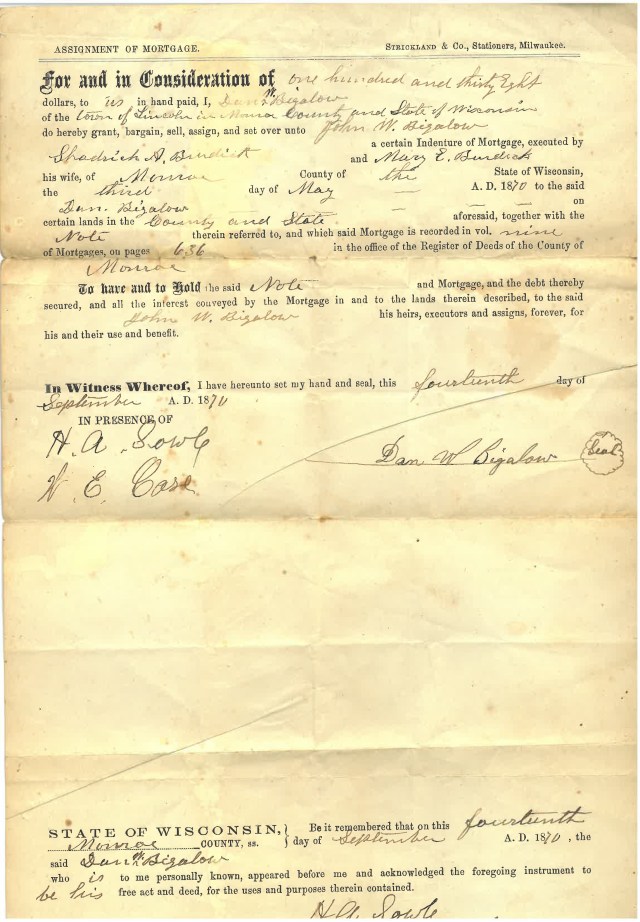 ASSIGNMENT OF MORTGAGE. STRICKLAND & CO., Stationers, Milwaukee.
For and in Consideration of one hundred and thirty Eight
dollars, to us in hand paid, I, Dan W. Bigalow
of the town of Lincoln in Monroe County and State of Wisconsin
do hereby grant, bargain, sell, assign, and set over unto John W. Bigalow
a certain Indenture of Mortgage, executed by
Shadrick A. Burdick and Mary E. Burdick
his wife, of Monroe County of the State of Wisconsin,
the third day of May — A. D. 1870 to the said
Dan. Bigalow — — — on
certain lands in the County and State aforesaid, together with the
Note therein referred to, and which said Mortgage is recorded in vol. nine
of Mortgages, on pages 636 in the office of the Register of Deeds of the County of
Monroe
To have and to Hold the said Note and Mortgage, and the debt thereby
secured, and all the interest conveyed by the Mortgage in and to the lands therein described, to the said
John W. Bigalow his heirs, executors and assigns, forever, for
his and their use and benefit.
In Witness Whereof, I have hereunto set my hand and seal, this fourteenth day of
September A. D. 1870
IN PRESENCE OF
H. A. Sowle
W. E. Case
Dan W Bigalow Seal
STATE OF WISCONSIN, } Be it remembered that on this fourteenth
Monroe COUNTY, ss. } day of September A. D. 1870, the
said Dan W. Bigalow
who is to me personally known, appeared before me and acknowledged the foregoing instrument to
be his free act and deed, for the uses and purposes therein contained.
H. A. Sowle